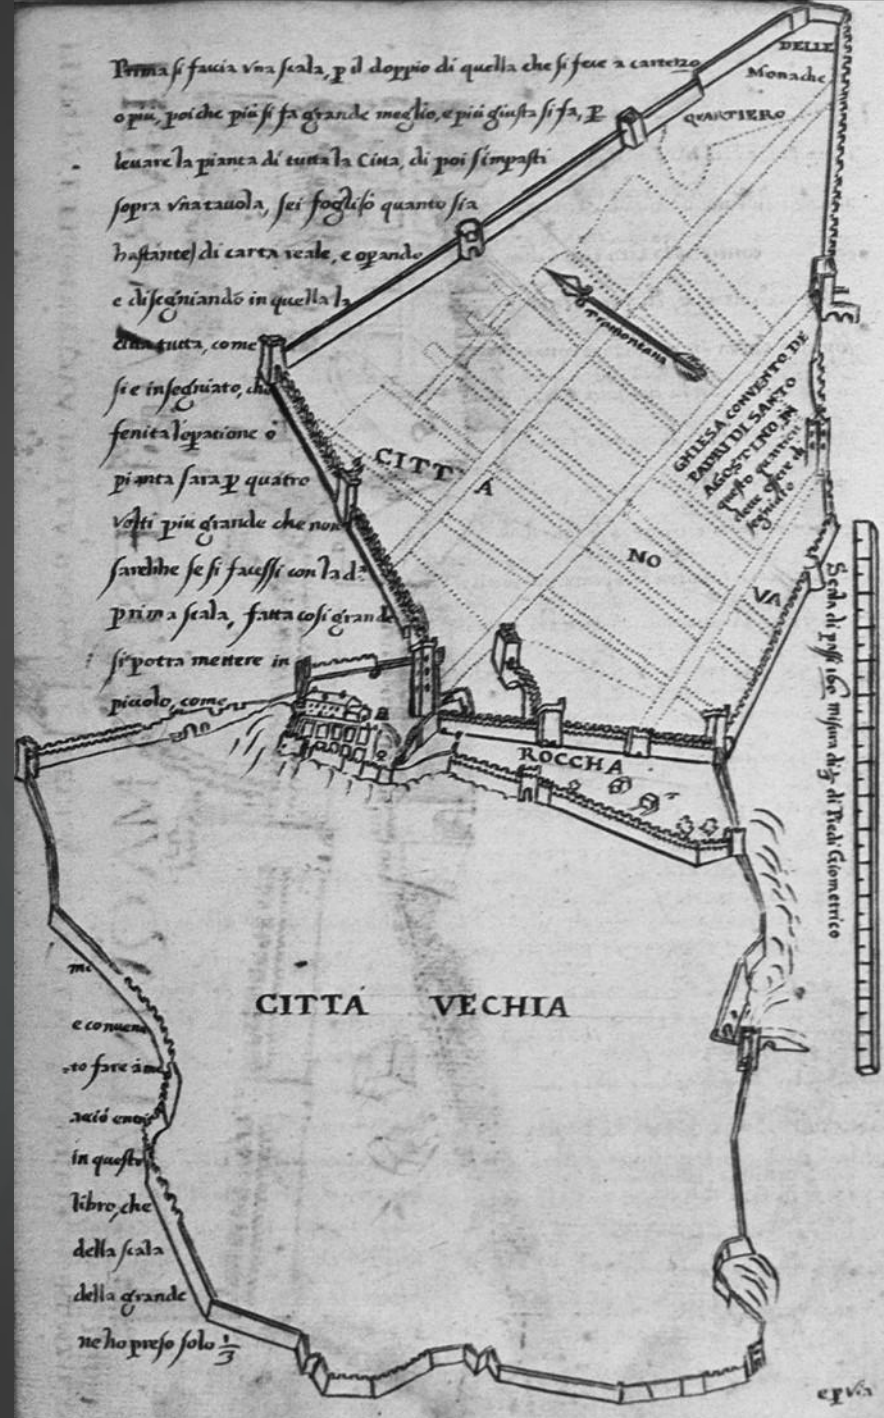 Prima si faccia vna scala, p il doppio di quella che si fece a
o piu, poi che piu si fa grande meglio, e piu giusta si fa, p
leuare la pianta di tutta la Citta, di poi s'impasti
sopra vna tauola, sei fogli, ò quanto sia
bastante) di carta reale, e opando
e disegniando in quella la
tutta, come
si e insegniato, che
fenita l'opatione ò
pianta sara p quatro
volti piu grande che non
sarebbe se si facessi con la d.ª
prima scala, fatta cosi grande
si potra mettere in
piccolo, come
mi
e conuenu
to fare à me
acciò entri
in questo
libro, che
della scala
della grande
ne ho preso solo 1/3
DELLE
Monache
QVARTIERO
Tramontana
CHIESA CONVENTO DE
PADRI DI SANTO
AGOSTINO, IN
questo quartieri
deue essere di
segniato
CITTA
NOVA
ROCCHA
CITTA VECHIA
Scala di passi 160 misura di 1/3 di Piedi Giometrico
e p via